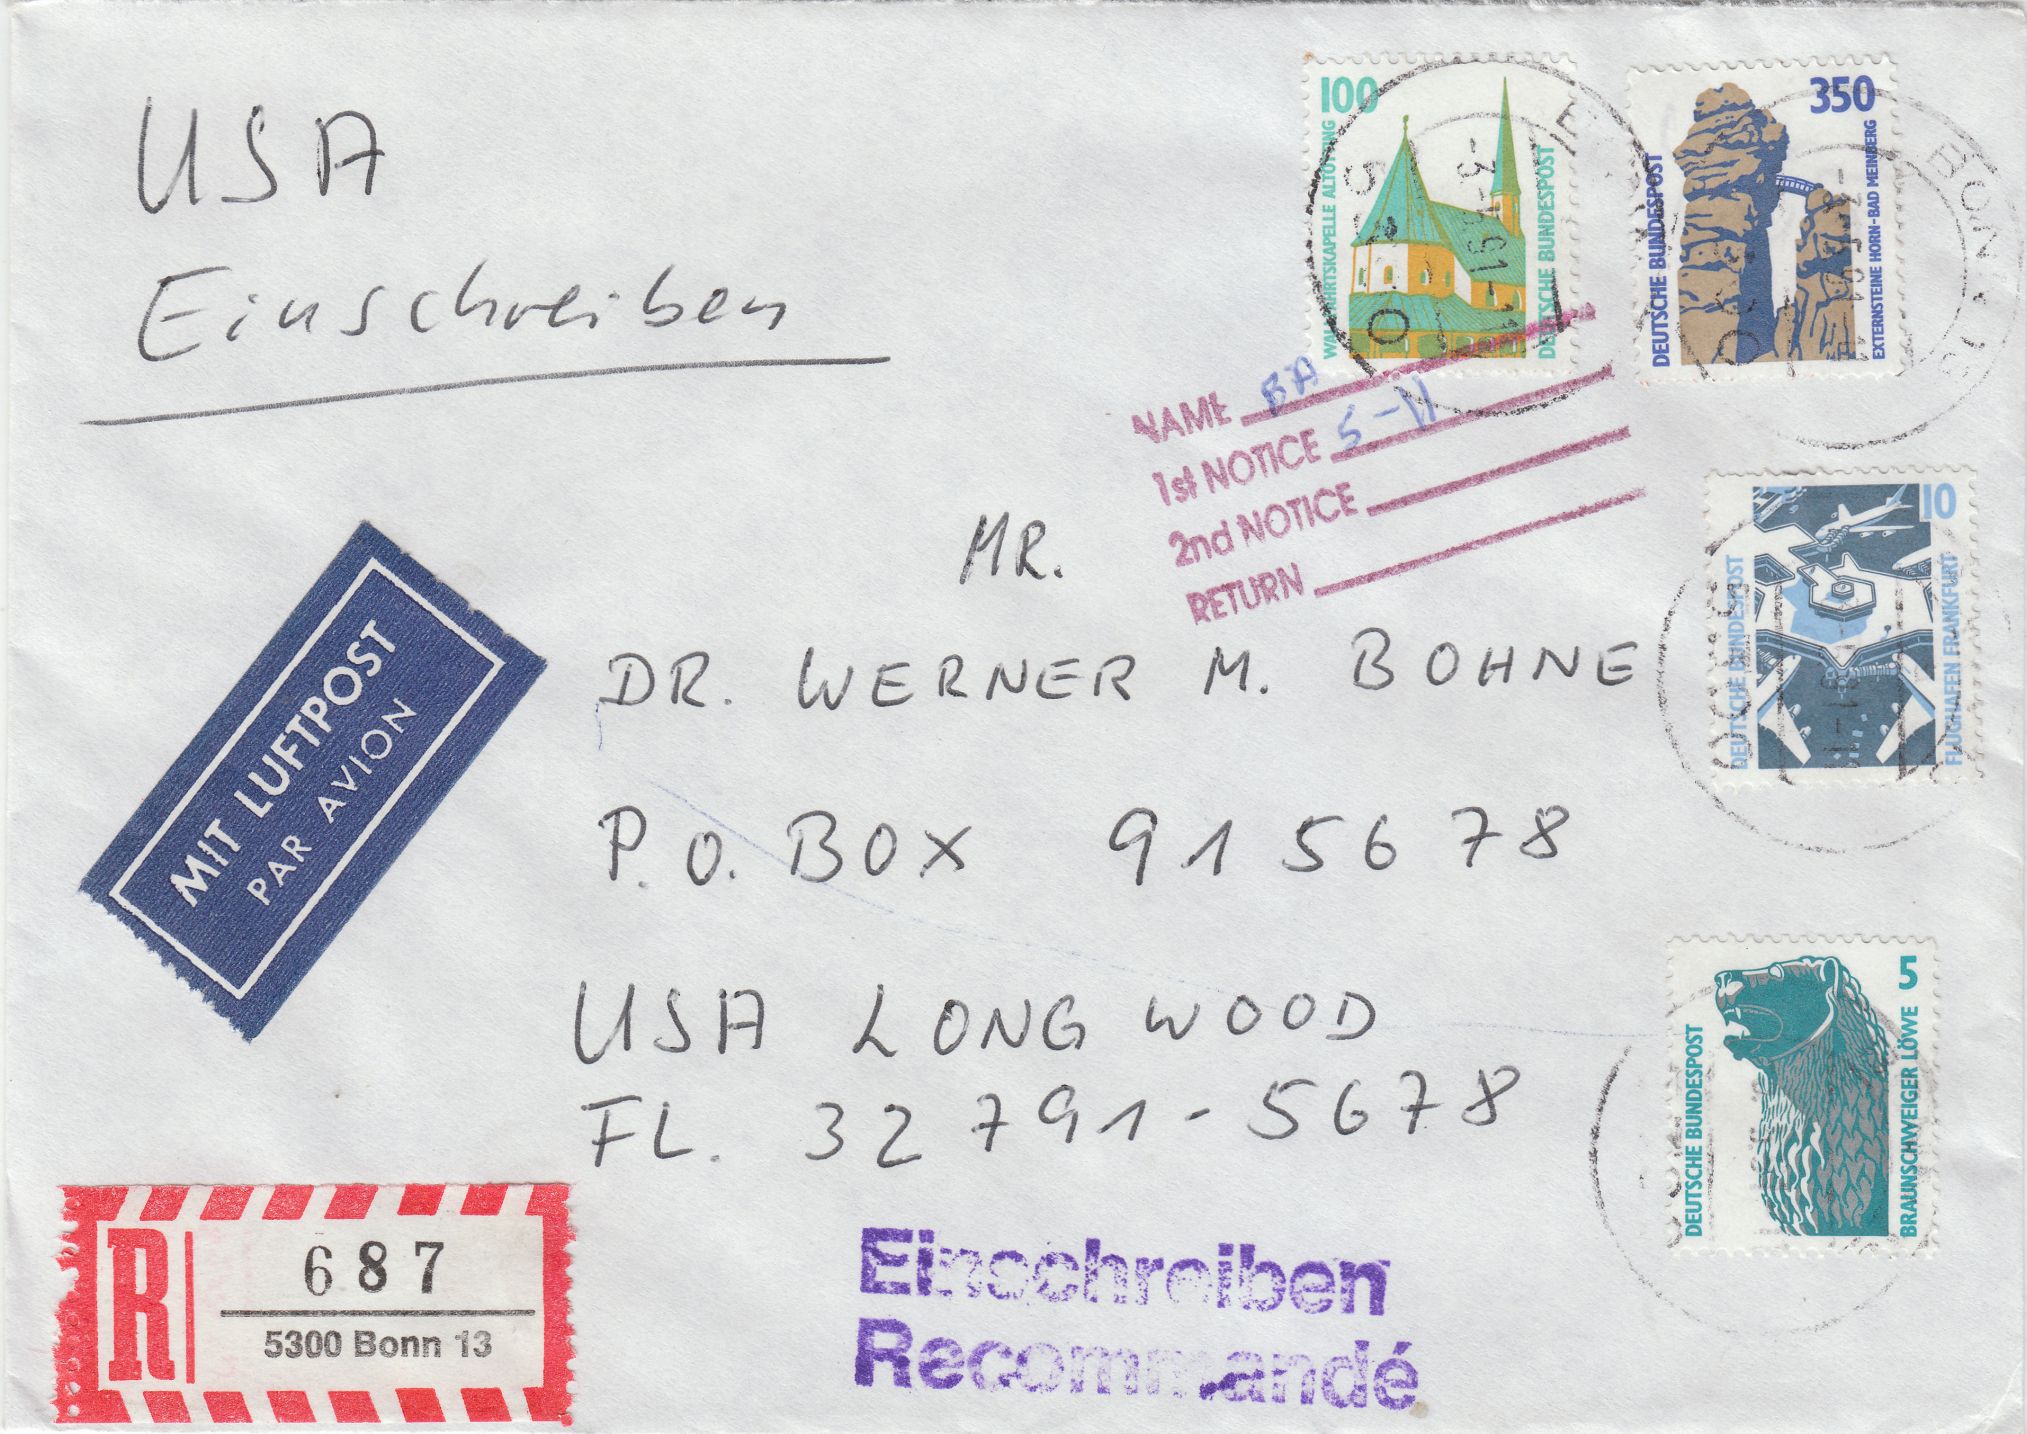 USA
Einschreiben
100
WALLFAHRTSKAPELLE ALTÖTTING
DEUTSCHE BUNDESPOST
350
DEUTSCHE BUNDESPOST
EXTERNSTEINE HORN-BAD MEINBERG
BONN
NAME BA
1st NOTICE 5-11
2nd NOTICE
RETURN
10
DEUTSCHE BUNDESPOST
FLUGHAFEN FRANKFURT
MR.
DR. WERNER M. BOHNE
P.O. BOX 915678
USA LONGWOOD
FL. 32791-5678
MIT LUFTPOST
PAR AVION
5
DEUTSCHE BUNDESPOST
BRAUNSCHWEIGER LÖWE
R
687
5300 Bonn 13
Einschreiben
Recommandé